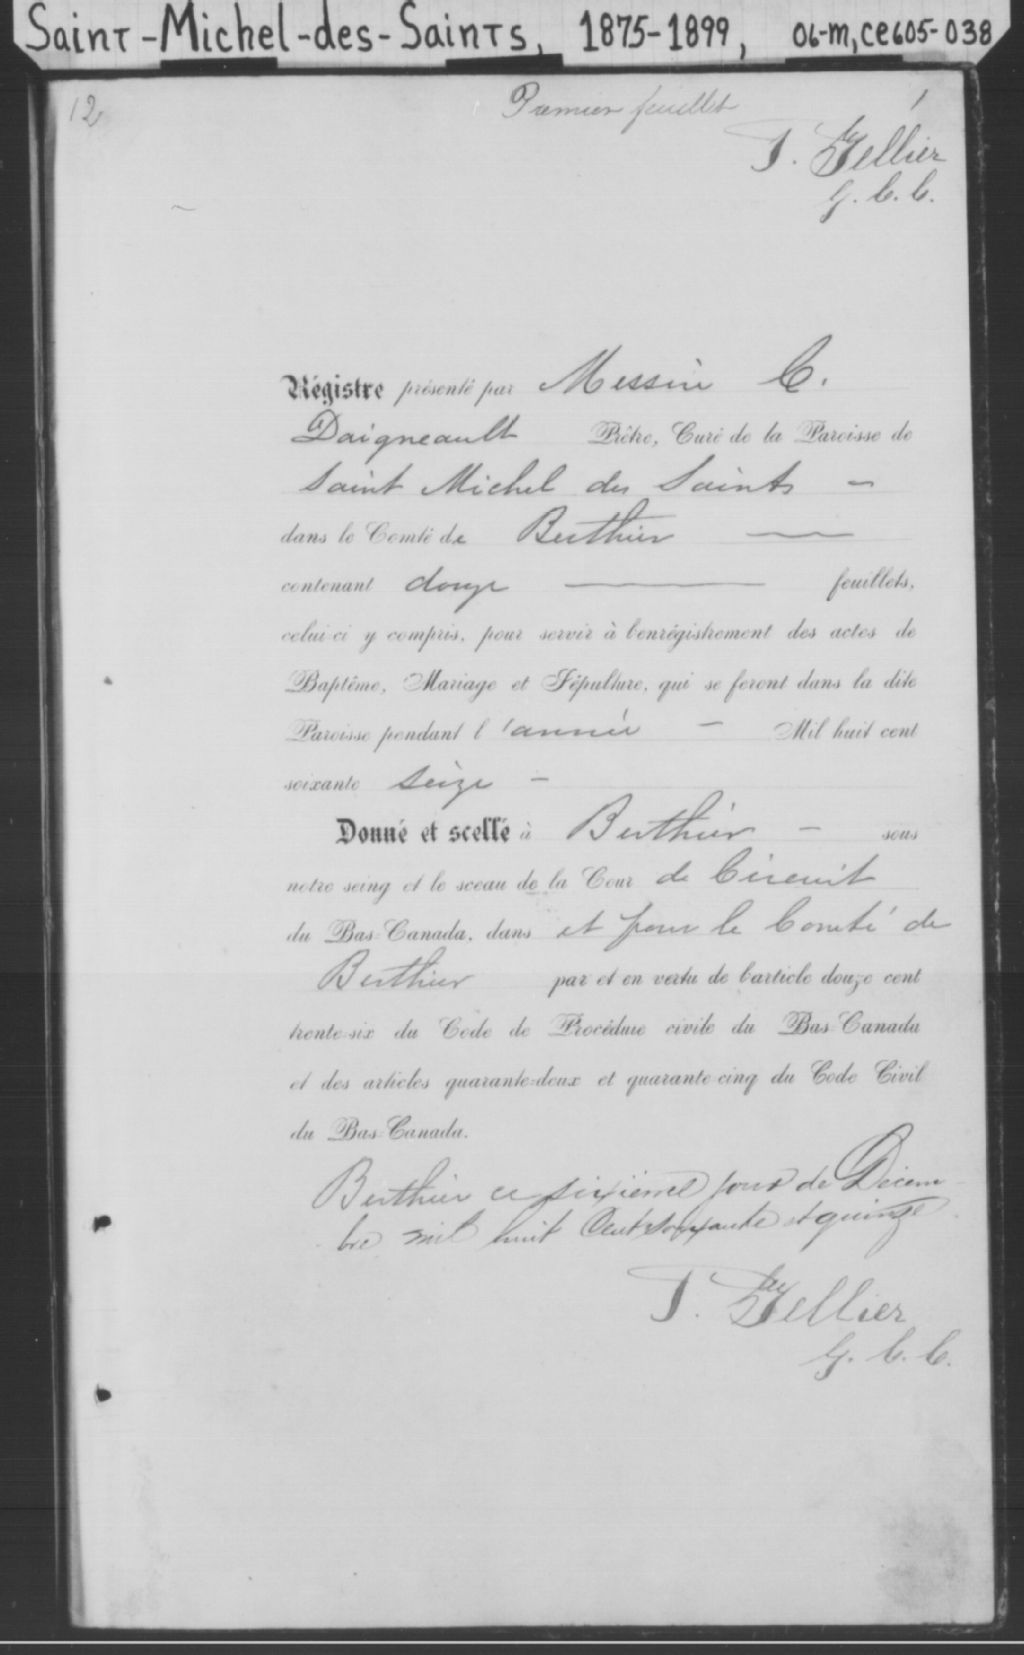 Saint-Michel-des-Saints, 1875-1899, 06-m,ce605-038
12
Premier feuillet
1
T. Tellier
G. C. C.
Régistre présenté par Messire C.
Daigneault Prêtre, Curé de la Paroisse de
Saint Michel des Saints –
dans le Comté de Berthier —
contenant douze — feuillets,
celui-ci y compris, pour servir à l'enrégistrement des actes de
Baptême, Mariage et Sépulture, qui se feront dans la dite
Paroisse pendant l'année – Mil huit cent
soixante seize –
Donné et scellé à Berthier – sous
notre seing et le sceau de la Cour de Circuit
du Bas-Canada, dans et pour le Comté de
Berthier par et en vertu de l'article douze cent
trente-six du Code de Procédure civile du Bas-Canada
et des articles quarante-deux et quarante-cinq du Code Civil
du Bas-Canada.
Berthier ce sixième jour de Décem-
bre mil huit Cent soixante et quinze
T. Tellier
G. C. C.